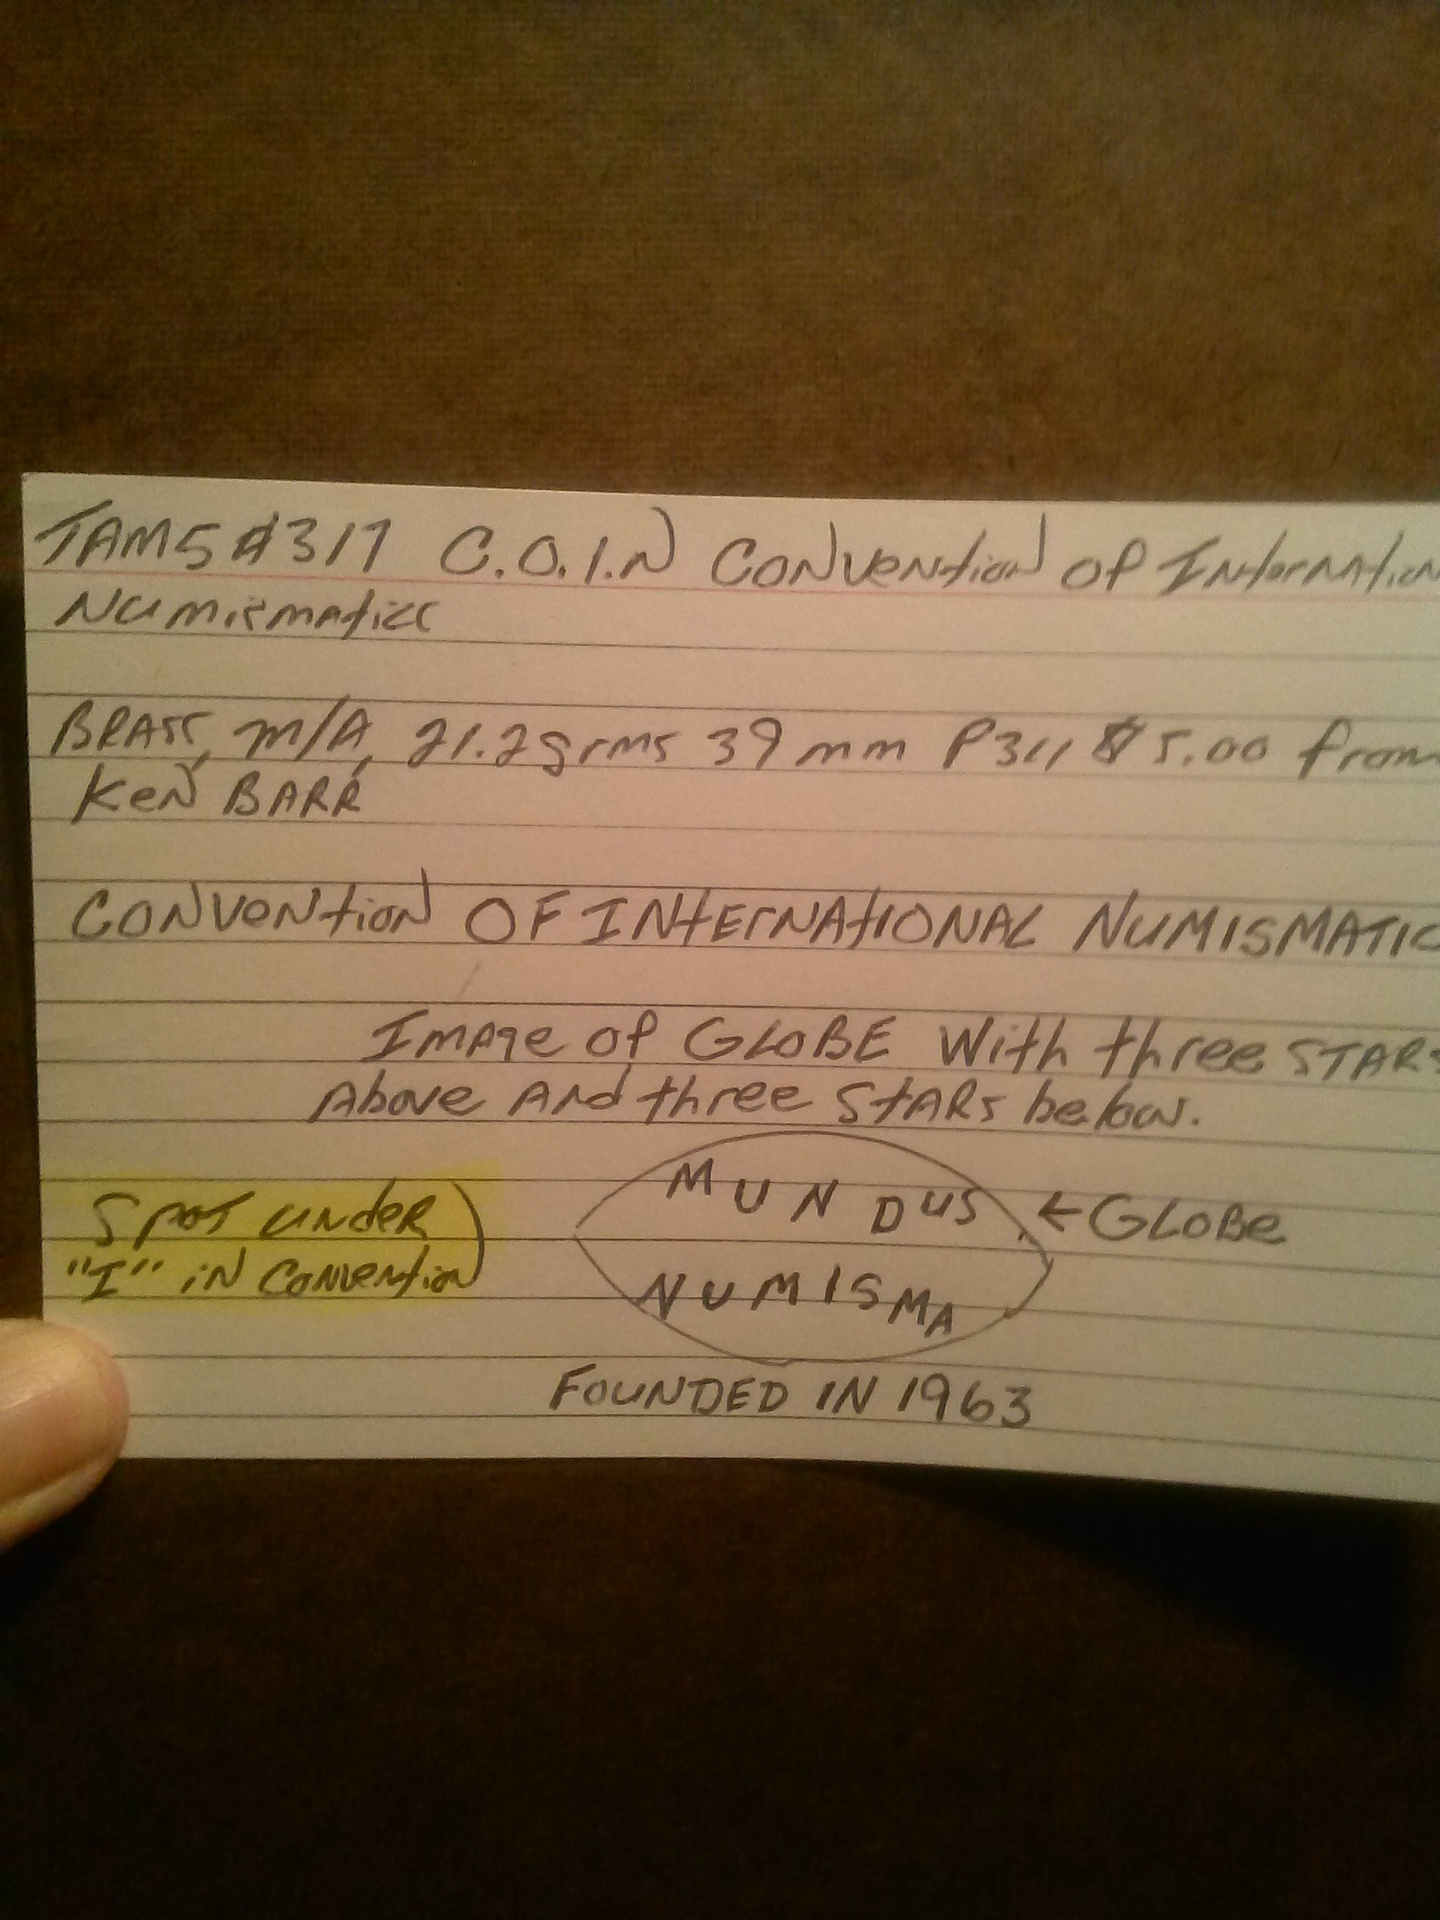 TAMS #317 C.O.I.N Convention of Internation
Numismatics
BRASS, M/A, 21.2grms 39mm P311 $5.00 from
Ken BARR
Convention OF INTERNATIONAL NUMISMATIC
Image of GLOBE With three STARS
Above And three STARs below.
MUNDUS ← GLOBE
Spot under
"I" in Convention
NUMISMA
FOUNDED IN 1963